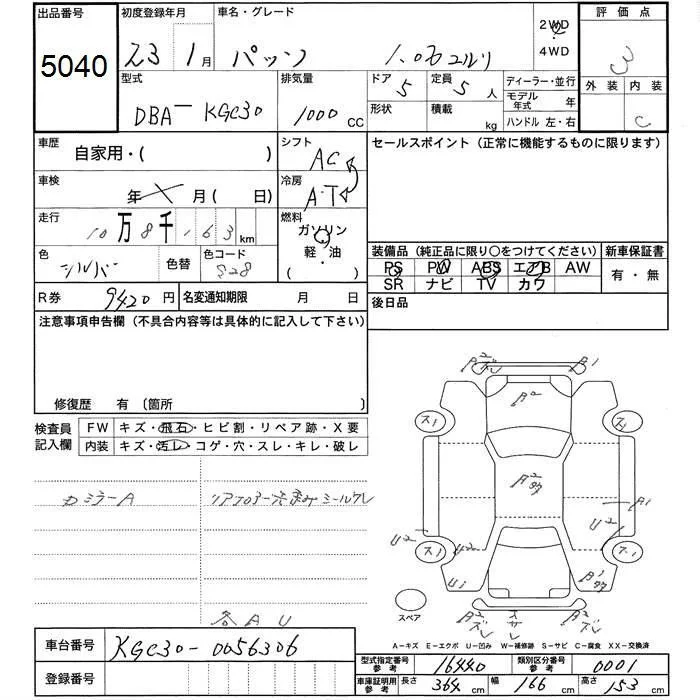 出品番号 初度登録年月 車名・グレード 評価点
5040 23 1月 パッソ 1.0G 2WD 3
4WD
型式 排気量 ドア 定員 ディーラー・並行 外装 内装
DBA-KGC30 1000cc 5 5人 モデル年式 年 C
形状 積載 kg ハンドル 左・右
車歴 シフト セールスポイント (正常に機能するものに限ります)
自家用・( ) AC
車検 冷房
年 月 ( 日) AT
走行 燃料
10万8千163km ガソリン
軽・油
( )
色 色替 色コード 装備品 (純正品に限り○をつけてください) 新車保証書
シルバー S28 PS PW ABS エアB AW 有・無
SR ナビ TV カワ
R券 9420円 名変通知期限 月 日 後日品
注意事項申告欄 (不具合内容等は具体的に記入して下さい)
修復歴 有 (箇所
検査員記入欄 FW キズ・飛石・ヒビ割・リペア跡・X要
内装 キズ・汚レ・コゲ・穴・スレ・キレ・破レ
カミラーA
各AU
A2 A1
A2
ス1 ス1
A2
A1
U2 U2
ス1 U2 ス1
U1 A1
スペア
A-キズ E-エクボ U-凹み W-補修跡 S-サビ C-腐食 XX-交換済
車台番号 KGC30-0056306
登録番号
型式指定番号参考 16440 類別区分番号参考 0001
車庫証明用参考 長さ 364cm 幅 166cm 高さ 153cm